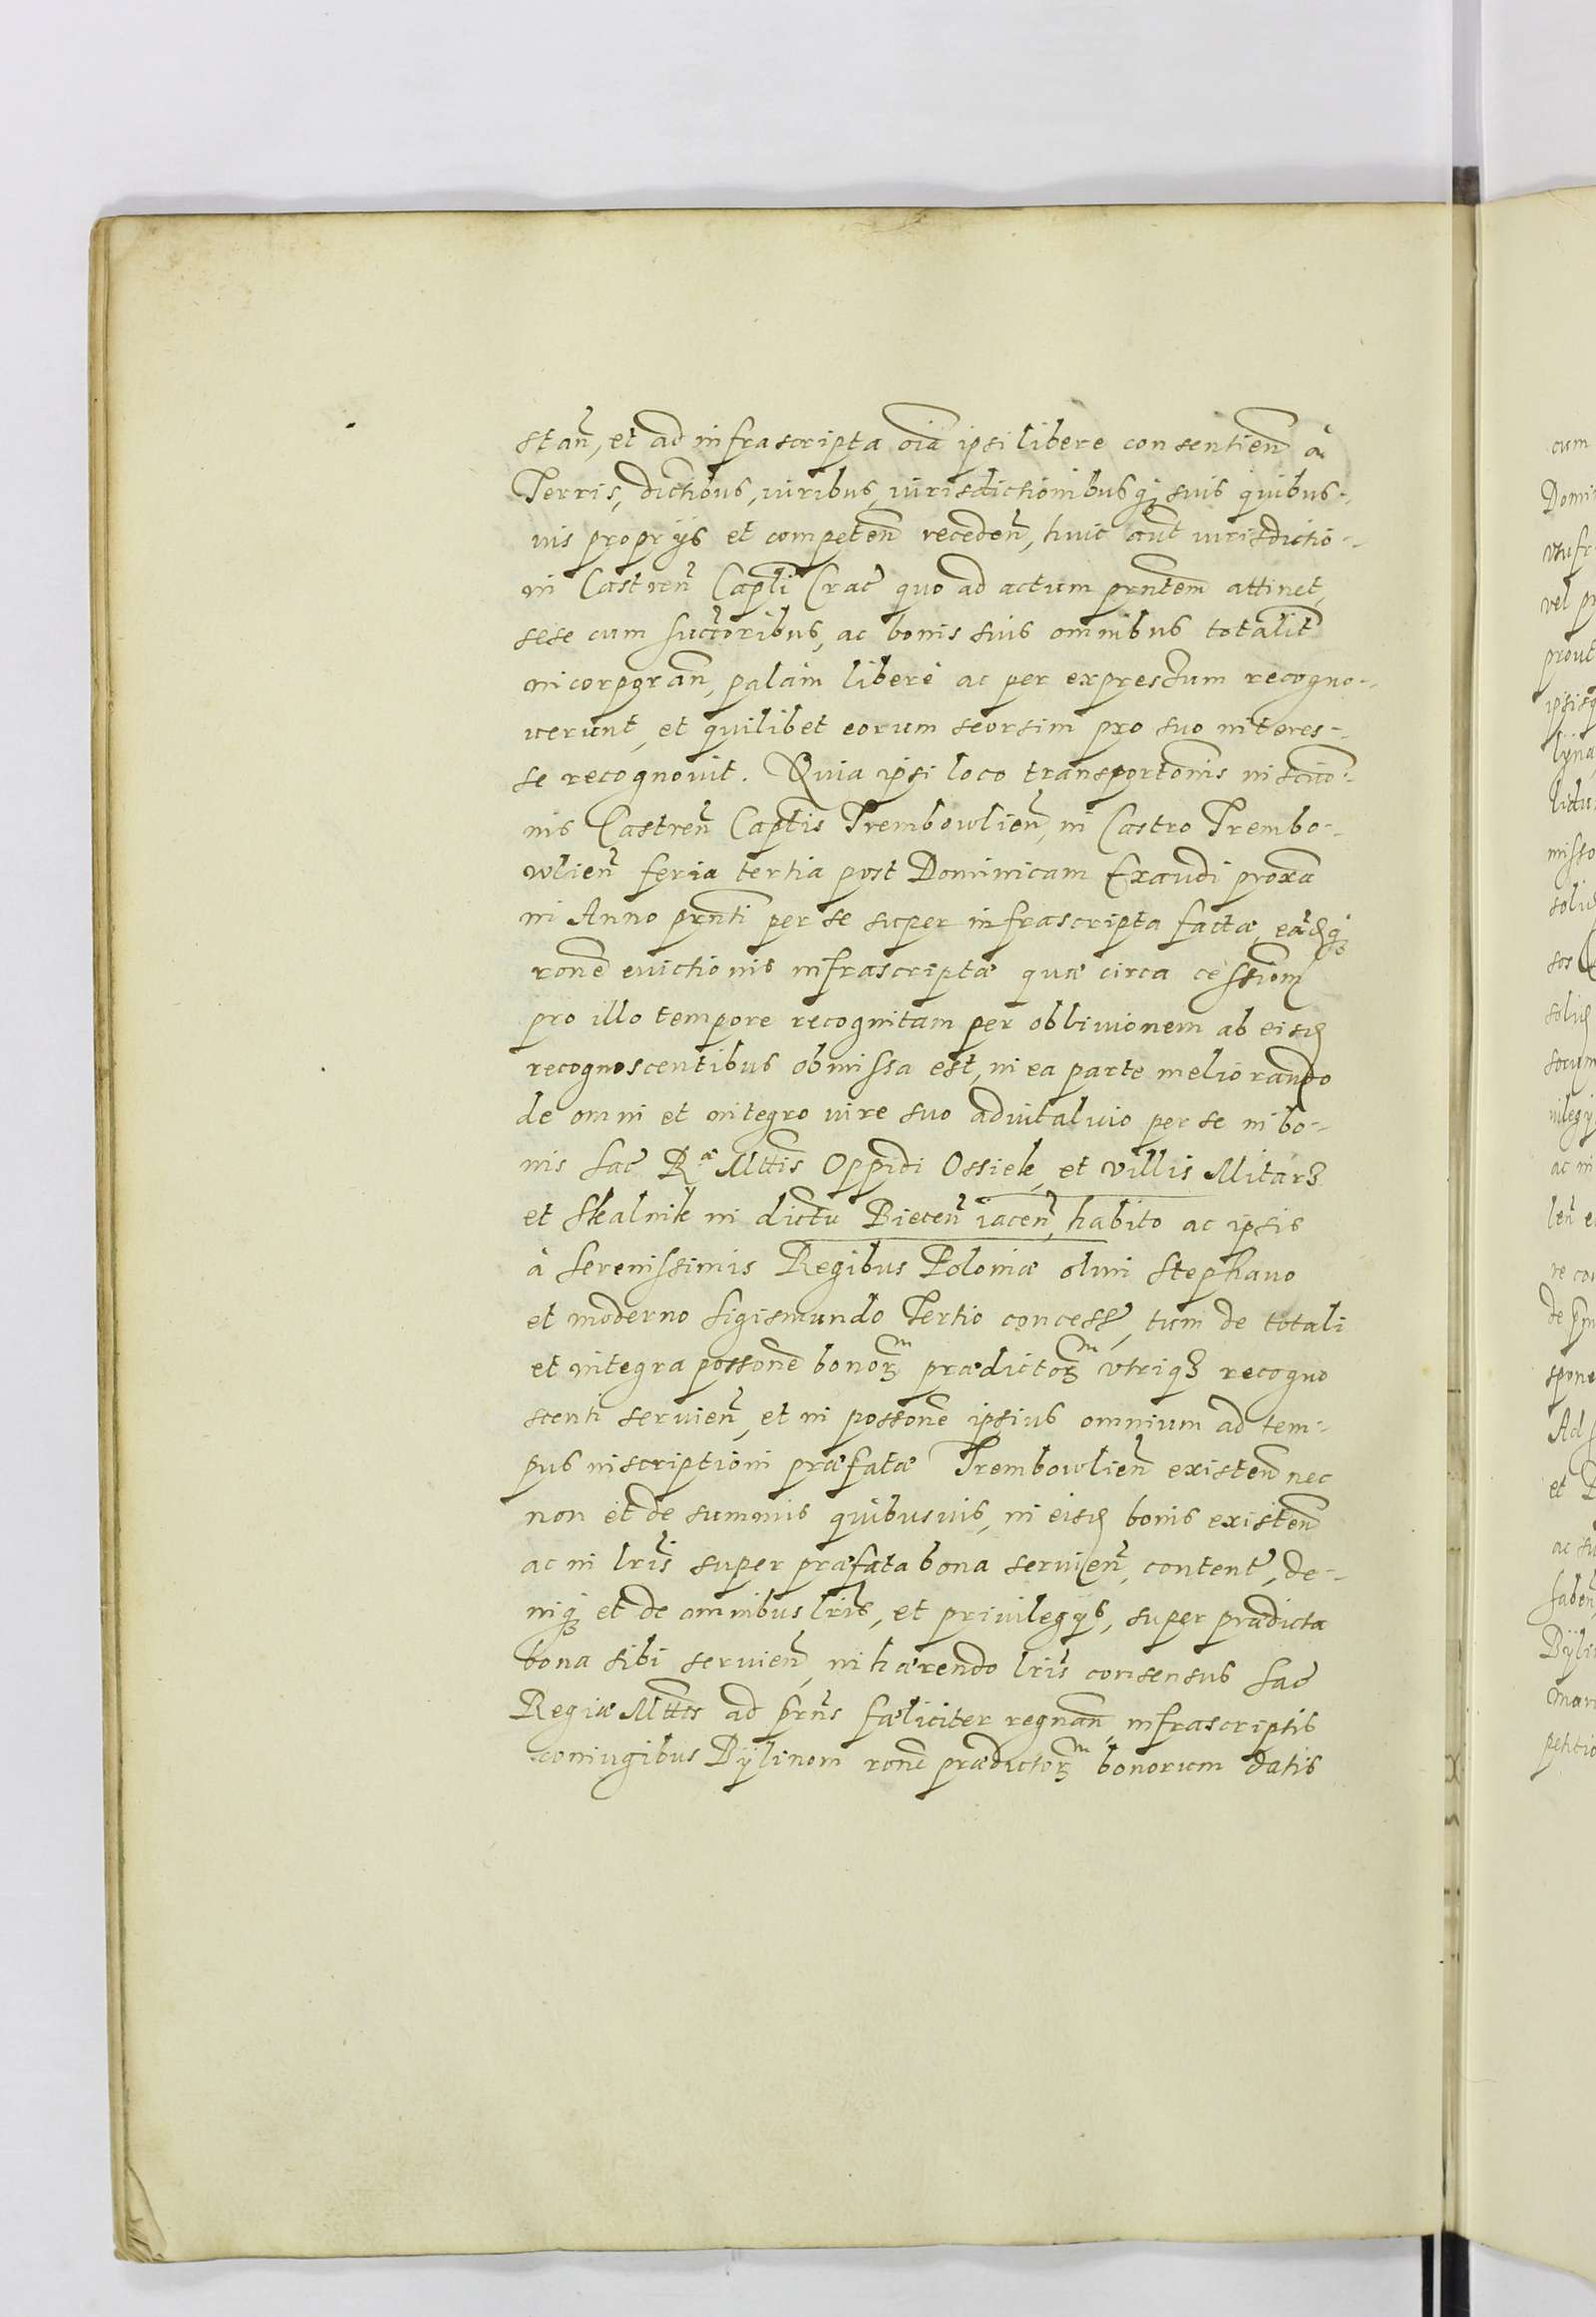 stan̄, et ad infrascripta oīa ipsi libere consentien̄ à
Terris, dictiōbus, iuribus, iurisdictionibusq₃ suis quibus-
uis proprijs et competen̄ receden̄, huic aūt iurisdictio-
ni Castren̄ Capt̄li Crac̄ quo ad actum pr̄ntem attinet,
sese cum succ̄toribus, ac bonis suis omnibus totalit̄
incorporan̄, palam liberè ac per expressum recogno-
uerunt, et quilibet eorum seorsim pro suo interes-
se recognouit. Quia ipsi loco transportōnis inscrip̄tio-
nis Castren̄ Capt̄lis Trembowlien̄, in Castro Trembo-
wlien̄ feria tertia post Dominicam Exaudi proxā
in Anno pr̄nti per se super infrascripta factæ, eādq₃
rōne euictionis infrascriptæ quæ circa cessionem
pro illo tempore recognitam per obliuionem ab eisd
recognoscentibus obmissa est, in ea parte meliorando
de omni et integro iure suo aduitalitio per se in bo-
nis Sac̄ Rᵃᵉ Mttis Oppidi Ossiek, et villis Mitarz
et Skalnik in dictu Biecen̄ iacen̄, habito ac ipsis
à Serenissimis Regibus Poloniæ olim Stephano
et moderno Sigismundo Tertio concess̄, tum de totali
et integra possōne bonorᵐ prædictorᵐ vtriq₃ recogno
scenti seruien̄, et in possōne ipsius omnium ad tem-
pus inscriptioni præfatæ Trembowlien̄ existen̄ nec
non et de summis quibusuis, in eisd bonis existen̄
ac in lr̄is super præfata bona seruien̄, content̄, de-
niq₃ et de omnibus lr̄is, et priuilegijs, super prædicta
bona sibi seruien̄, inhærendo lr̄is consensus Sac̄
Regiæ Mttis ad pr̄ns fæliciter regnan̄, infrascriptis
coniugibus Bÿlinom rōne prædictorᵐ bonorum datis